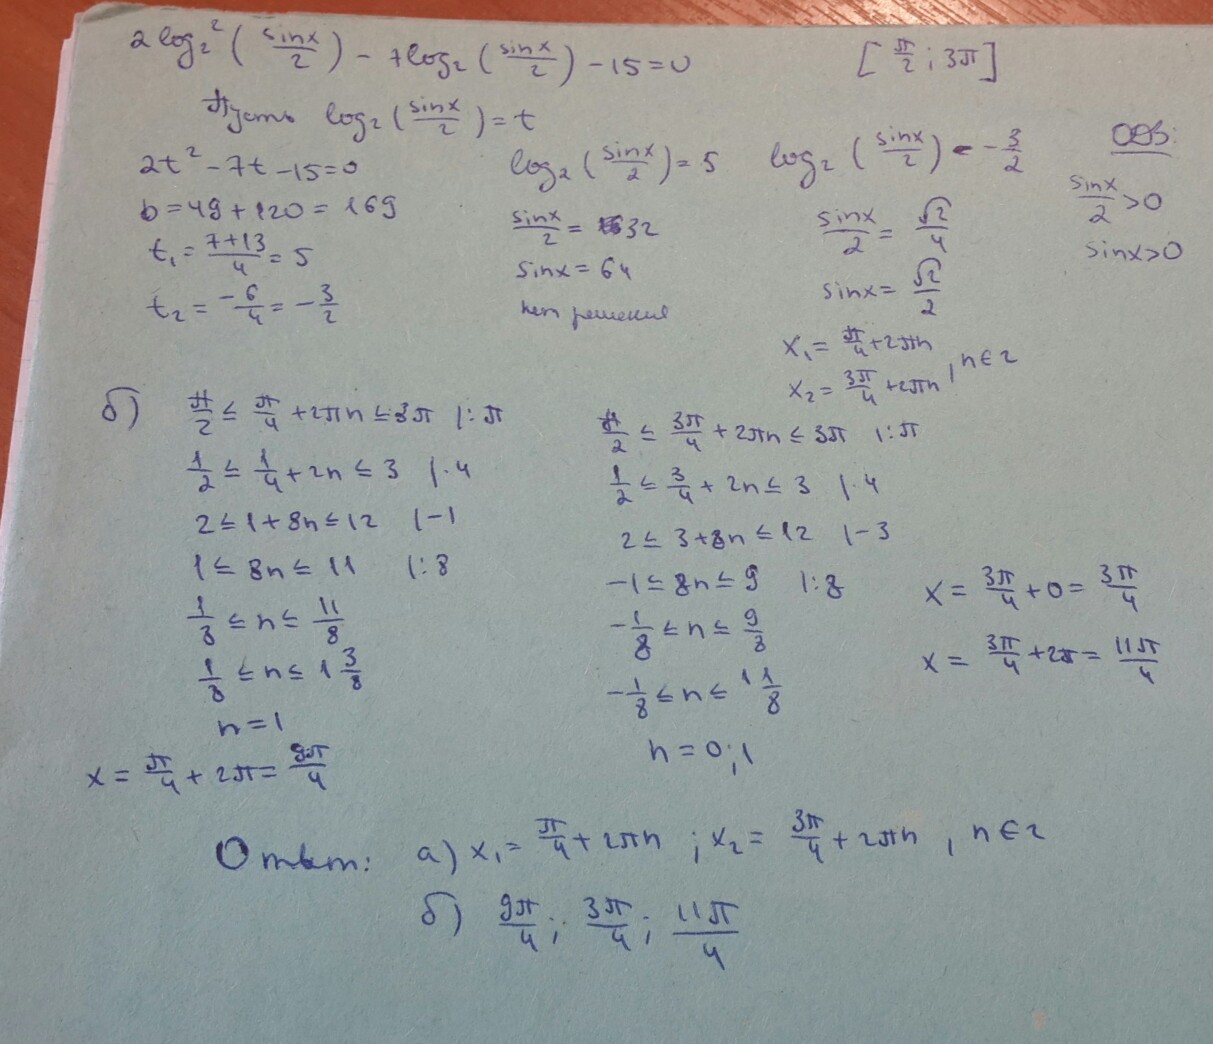 2log₂²(sinx/2) - 7log₂(sinx/2) - 15 = 0 [π/2; 3π]
Пусть log₂(sinx/2) = t
2t² - 7t - 15 = 0
D = 49 + 120 = 169
t₁ = (7+13)/4 = 5
t₂ = -6/4 = -3/2
log₂(sinx/2) = 5
sinx/2 = 32
sinx = 64
нет решения
log₂(sinx/2) = -3/2
sinx/2 = √2/4
sinx = √2/2
x₁ = π/4 + 2πn
x₂ = 3π/4 + 2πn, n∈z
ОДЗ:
sinx/2 > 0
sinx > 0
б) π/2 ≤ π/4 + 2πn ≤ 3π |:π
1/2 ≤ 1/4 + 2n ≤ 3 |·4
2 ≤ 1 + 8n ≤ 12 |-1
1 ≤ 8n ≤ 11 |:8
1/8 ≤ n ≤ 11/8
1/8 ≤ n ≤ 1 3/8
n = 1
x = π/4 + 2π = 9π/4
π/2 ≤ 3π/4 + 2πn ≤ 3π |:π
1/2 ≤ 3/4 + 2n ≤ 3 |·4
2 ≤ 3 + 8n ≤ 12 |-3
-1 ≤ 8n ≤ 9 |:8
-1/8 ≤ n ≤ 9/8
-1/8 ≤ n ≤ 1 1/8
n = 0;1
x = 3π/4 + 0 = 3π/4
x = 3π/4 + 2π = 11π/4
Ответ: а) x₁ = π/4 + 2πn ; x₂ = 3π/4 + 2πn , n∈z
б) 9π/4; 3π/4; 11π/4